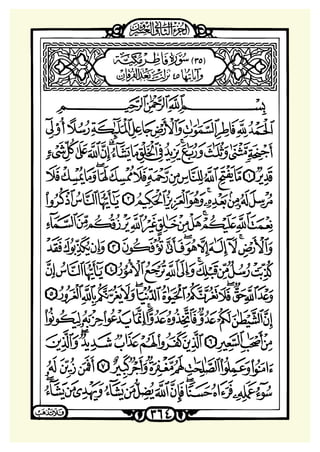 الجزء الثاني والعشرون
(٣٥) سُورَةُ فَاطِرٍ مَكِّيَّة
وَآيَاتُهَا ٤٥ نَزَلَتْ بَعْدَ الْفُرْقَانِ
بِسْمِ اللَّهِ الرَّحْمَٰنِ الرَّحِيمِ
الْحَمْدُ لِلَّهِ فَاطِرِ السَّمَٰوَٰتِ وَالْأَرْضِ جَاعِلِ الْمَلَٰئِكَةِ رُسُلًا أُولِى
أَجْنِحَةٍ مَثْنَىٰ وَثُلَٰثَ وَرُبَٰعَ يَزِيدُ فِى الْخَلْقِ مَا يَشَاءُ إِنَّ اللَّهَ عَلَىٰ كُلِّ شَىْءٍ
قَدِيرٌ ١ مَا يَفْتَحِ اللَّهُ لِلنَّاسِ مِنْ رَحْمَةٍ فَلَا مُمْسِكَ لَهَا وَمَا يُمْسِكْ فَلَا
مُرْسِلَ لَهُ مِنْ بَعْدِهِ وَهُوَ الْعَزِيزُ الْحَكِيمُ ٢ يَٰأَيُّهَا النَّاسُ اذْكُرُوا
نِعْمَتَ اللَّهِ عَلَيْكُمْ هَلْ مِنْ خَٰلِقٍ غَيْرُ اللَّهِ يَرْزُقُكُمْ مِنَ السَّمَاءِ
وَالْأَرْضِ لَا إِلَٰهَ إِلَّا هُوَ فَأَنَّىٰ تُؤْفَكُونَ ٣ وَإِنْ يُكَذِّبُوكَ فَقَدْ
كُذِّبَتْ رُسُلٌ مِنْ قَبْلِكَ وَإِلَى اللَّهِ تُرْجَعُ الْأُمُورُ ٤ يَٰأَيُّهَا النَّاسُ إِنَّ
وَعْدَ اللَّهِ حَقٌّ فَلَا تَغُرَّنَّكُمُ الْحَيَوٰةُ الدُّنْيَا وَلَا يَغُرَّنَّكُمْ بِاللَّهِ الْغَرُورُ ٥
إِنَّ الشَّيْطَٰنَ لَكُمْ عَدُوٌّ فَاتَّخِذُوهُ عَدُوًّا إِنَّمَا يَدْعُوا حِزْبَهُ لِيَكُونُوا
مِنْ أَصْحَٰبِ السَّعِيرِ ٦ الَّذِينَ كَفَرُوا لَهُمْ عَذَابٌ شَدِيدٌ وَالَّذِينَ
ءَامَنُوا وَعَمِلُوا الصَّٰلِحَٰتِ لَهُمْ مَغْفِرَةٌ وَأَجْرٌ كَبِيرٌ ٧ أَفَمَنْ زُيِّنَ لَهُ
سُوءُ عَمَلِهِ فَرَءَاهُ حَسَنًا فَإِنَّ اللَّهَ يُضِلُّ مَنْ يَشَاءُ وَيَهْدِى مَنْ يَشَاءُ
٣٦٤
فلا تذهب